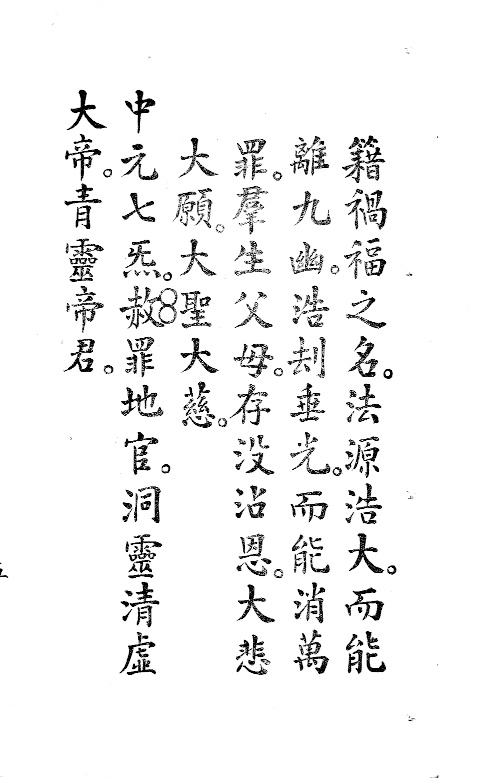 籍禍福之名。法源浩大。而能
離九幽。浩刦垂光。而能消萬
罪。羣生父母。存没沾恩。大悲
大願。大聖大慈。
中元七炁。赦罪地官。洞靈清虛
大帝。青靈帝君。
五